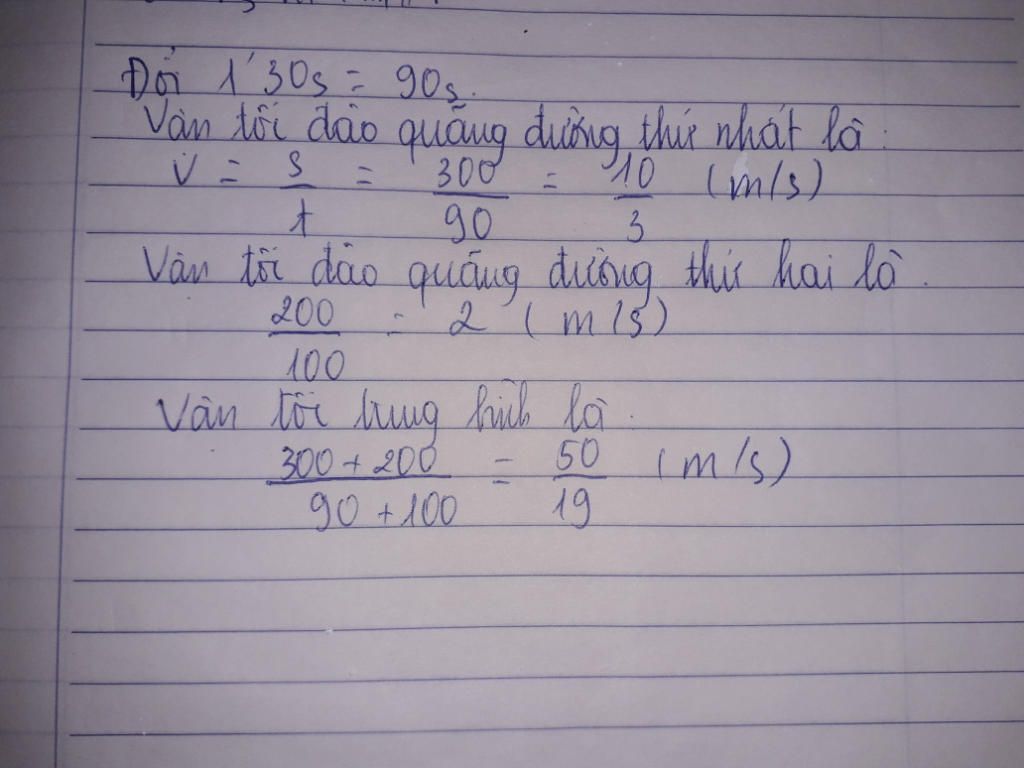 Đổi 1'30s = 90s.
Vận tốc đảo quãng đường thứ nhất là:
V = s/t = 300/90 = 10/3 (m/s)
Vận tốc đảo quãng đường thứ hai là.
200/100 = 2 (m/s)
Vận tốc trung bình là:
300+200/90+100 = 50/19 (m/s)